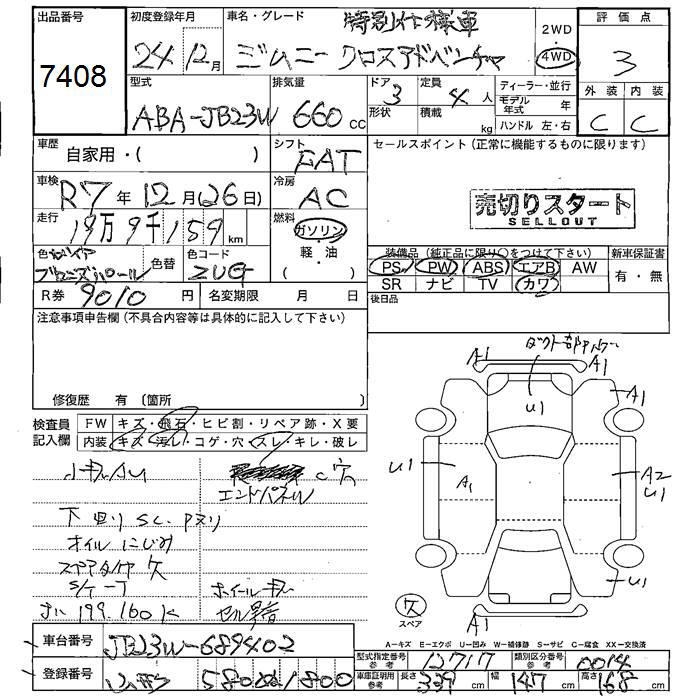 出品番号 7408
初度登録年月 24年 12月
車名・グレード 特別仕様車
ジムニー クロスアドベンチャー
2WD
4WD
評価点 3
外装 内装
C C
型式 ABA-JB23W
排気量 660 cc
ドア 3
形状
定員 4 人
積載 kg
ディーラー・並行
モデル年式 年
ハンドル 左・右
車歴 自家用・( )
シフト FAT
セールスポイント (正常に機能するものに限ります)
車検 R7年 12月(26日)
冷房 AC
売切りスタート
SELLOUT
走行 19万9千159 km
燃料 ガソリン・軽・油( )
色
ブロンズパール
色替
色コード ZUG
装備品 (純正品に限り○をつけて下さい)
新車保証書
PS PW ABS エアB AW
有・無
SR ナビ TV カワ
R券 9010 円
名変期限 月 日
後日品
注意事項申告欄 (不具合内容等は具体的に記入して下さい)
修復歴 有 (箇所 )
検査員記入欄
FW キズ・飛石・ヒビ割・リペア跡・X要
内装 キズ・汚レ・コゲ・穴・スレ・キレ・破レ
小キズ小U
C穴
エンドパネル
下回り SC. Pヌリ
オイルにじみ
スペアタイヤ欠
ホイールキズ
セル異音
199.160K
A1
A1
A1
U1
U1
A1
A2
U1
U1
A1
欠
スペア
A-キズ E-エクボ U-凹み W-補修跡 S-サビ C-腐食 XX-交換済
車台番号 JB23W-689402
型式指定番号 参考 12717
類別区分番号 参考 0014
登録番号 580 1800
車庫証明用 参考 長さ 339 cm 幅 147 cm 高さ 168 cm